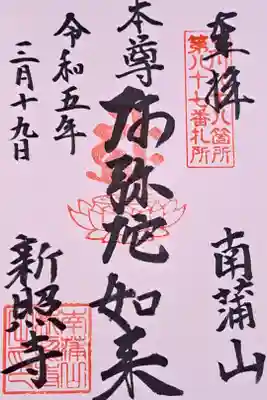 奉拝
八箇所
第八十七番札所
南蒲山
本尊
阿弥陀如来
令和五年
三月十九日
新照寺
南蒲山